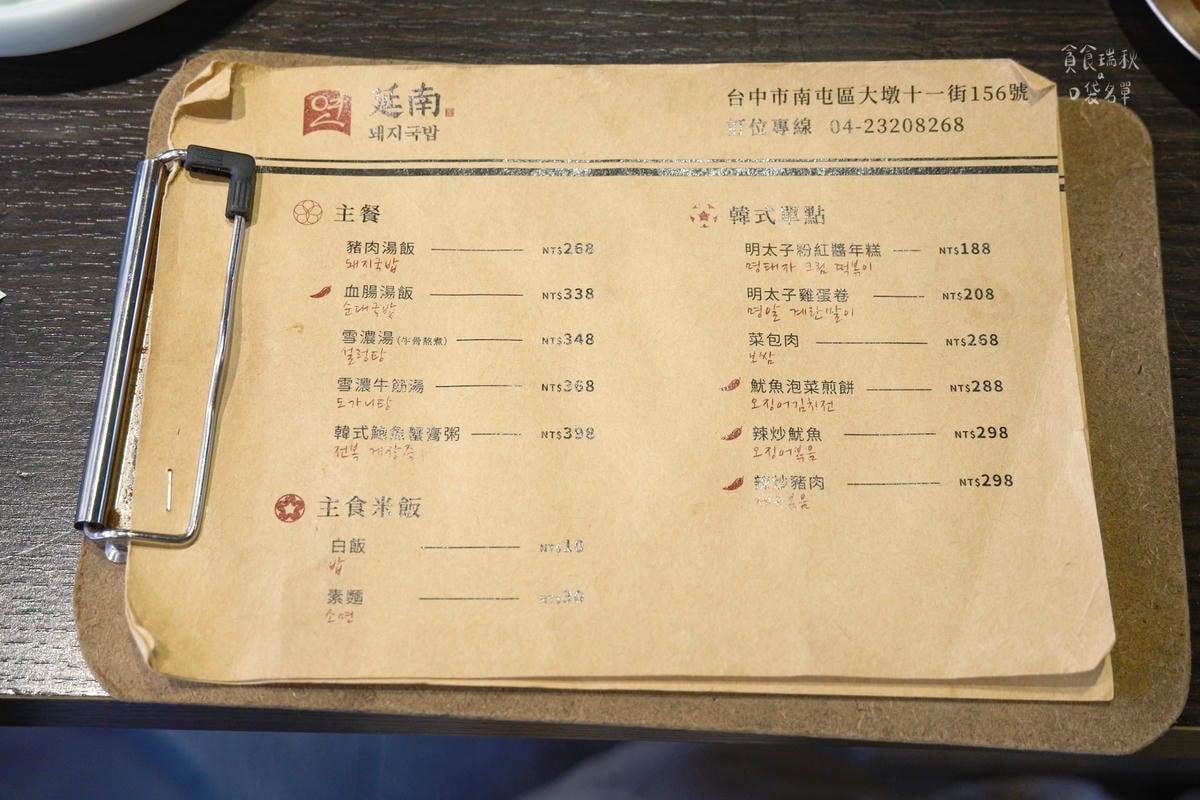 貪食瑞秋
口袋名單
연
延南
돼지국밥
台中市南屯區大墩十一街156號
訂位專線 04-23208268
主餐
豬肉湯飯 NT$268
돼지국밥
血腸湯飯 NT$338
순대국밥
雪濃湯(牛骨熬煮) NT$348
설렁탕
雪濃牛筋湯 NT$368
도가니탕
韓式鮑魚蟹膏粥 NT$398
전복 게장죽
主食米飯
白飯 NT$10
밥
素麵 NT$30
소면
韓式單點
明太子粉紅醬年糕 NT$188
명태자 크림 떡볶이
明太子雞蛋卷 NT$208
명알 계란말이
菜包肉 NT$268
보쌈
魷魚泡菜煎餅 NT$288
오징어김치전
辣炒魷魚 NT$298
오징어볶음
辣炒豬肉 NT$298
볶음